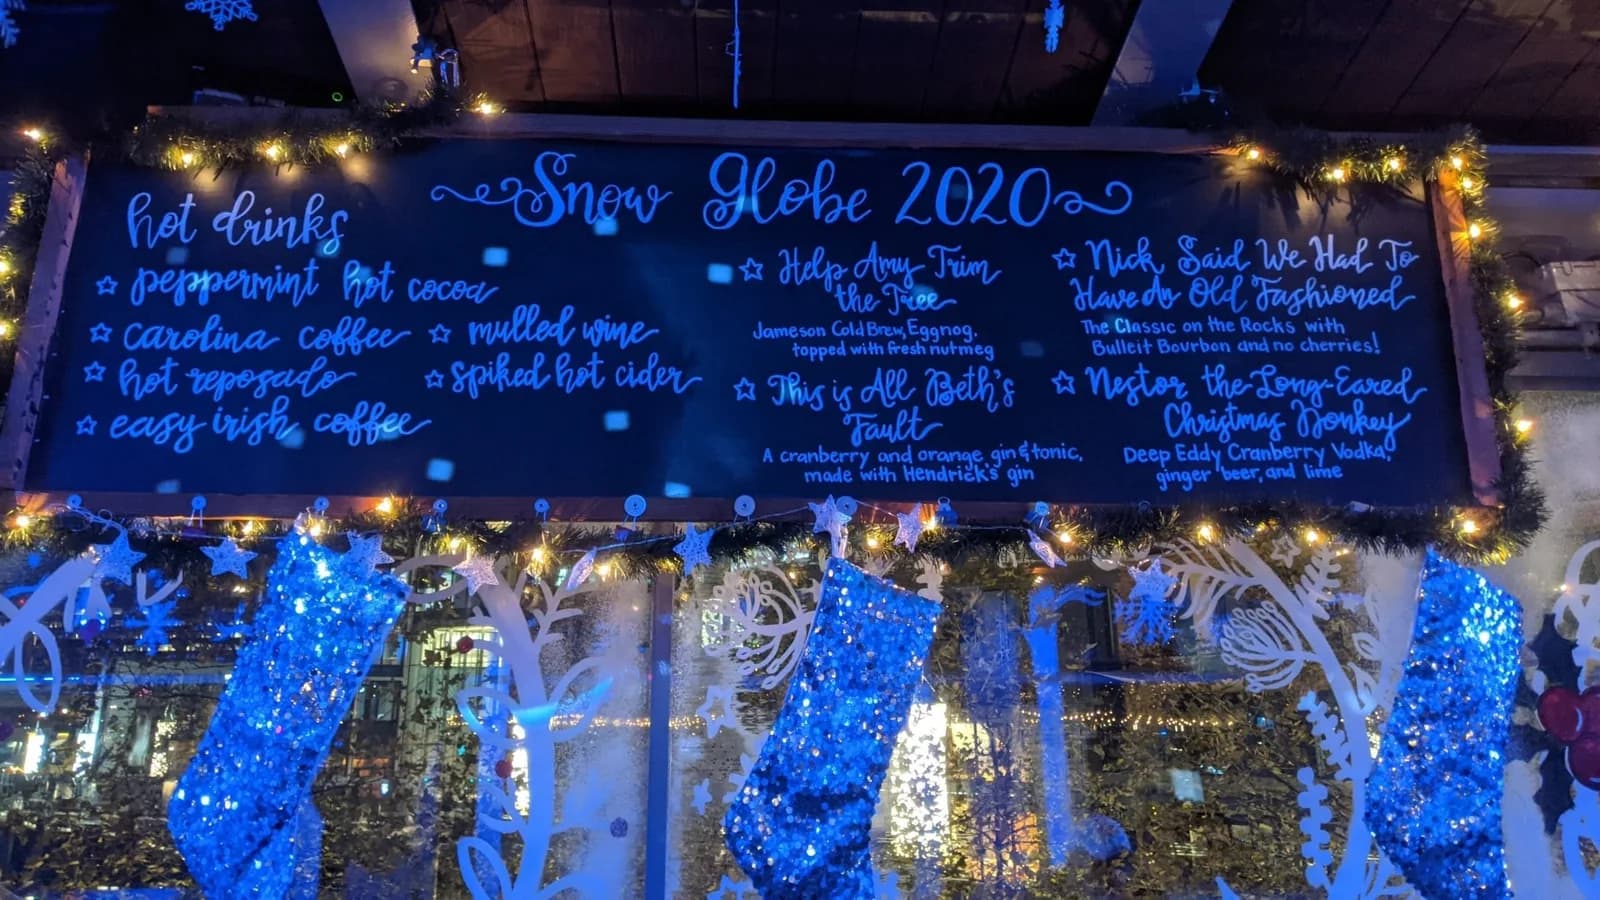 Snow Globe 2020
hot drinks
peppermint hot cocoa
carolina coffee
mulled wine
hot reposado
spiked hot cider
easy irish coffee
Help Amy Trim
the Tree
Jameson Cold Brew, Eggnog,
topped with fresh nutmeg
This is All Beth's
Fault
A cranberry and orange gin & tonic,
made with Hendrick's gin
Nick Said We Had To
Have An Old Fashioned
The Classic on the Rocks with
Bulleit Bourbon and no cherries!
Nestor the Long-Eared
Christmas Donkey
Deep Eddy Cranberry Vodka,
ginger beer, and lime